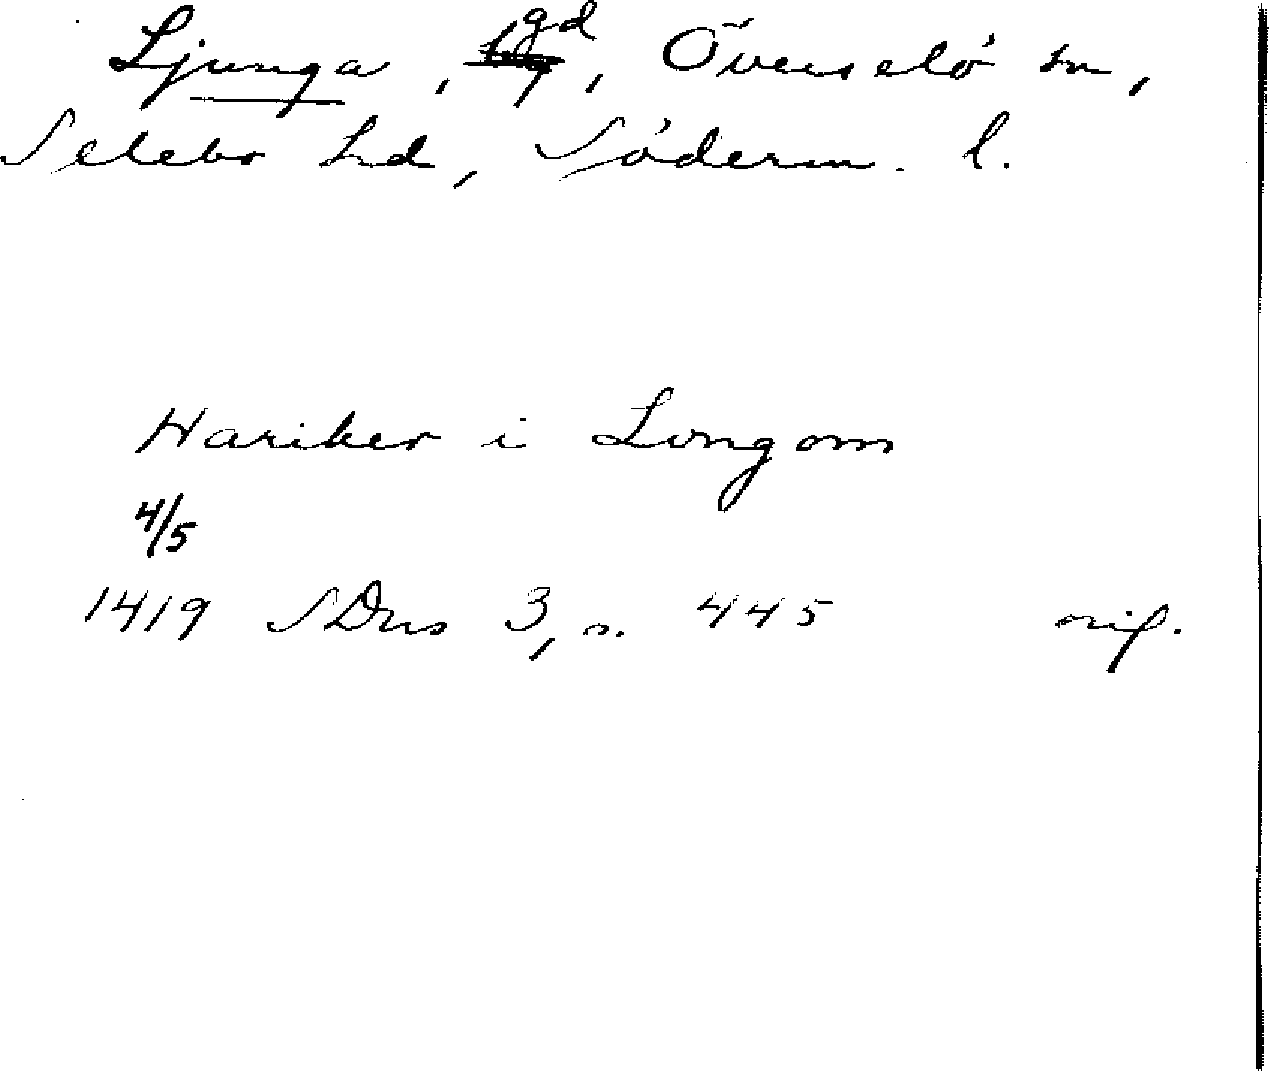 Ljunga, gd, Överselö sn,
Selebo hd, Söderm. l.
Hariker i Longom
4/5
1419 SDns 3, s. 445 orig.